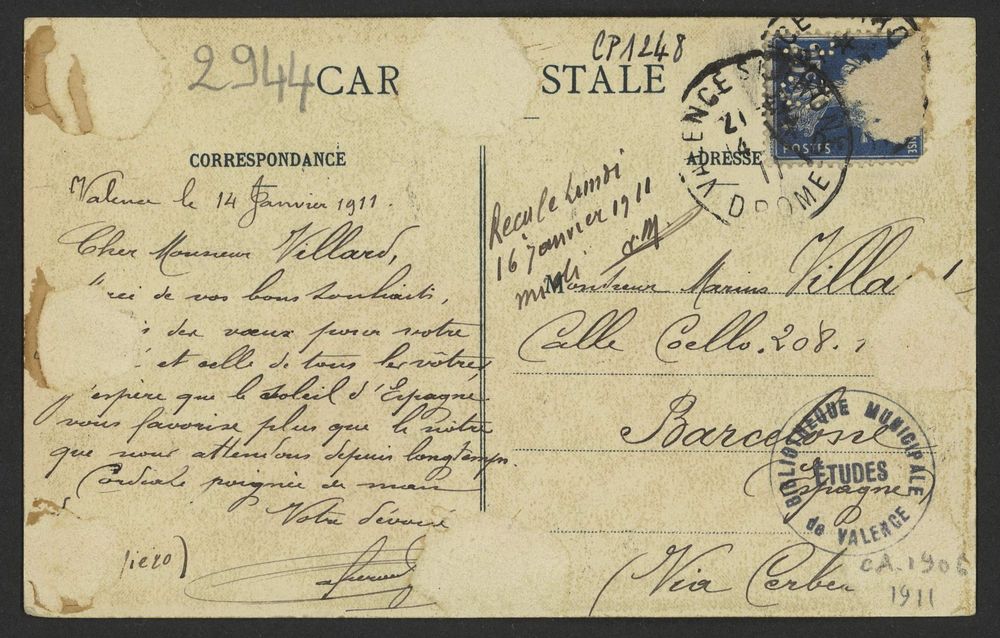 2944
CP1248
CAR STALE
CORRESPONDANCE
ADRESSE
VALENCE
21
14
11
DROME
POSTES
Valence le 14 Janvier 1911.
Cher Monsieur Villard,
rci de vos bons souhaits,
des vœux pour votre
et celle de tous les vôtres
espère que le soleil d'Espagne
vous favorise plus que le nôtre
que nous attendons depuis longtemps.
Cordiale poignée de main
Votre dévoué
Recu le Lundi
16 janvier 1911
midi
Monsieur Marius Villa
Calle Coello. 208.
Barcelone
Espagne
(Via Cerber
BIBLIOTHEQUE MUNICIPALE
ÉTUDES
de VALENCE
CA. 1906
1911